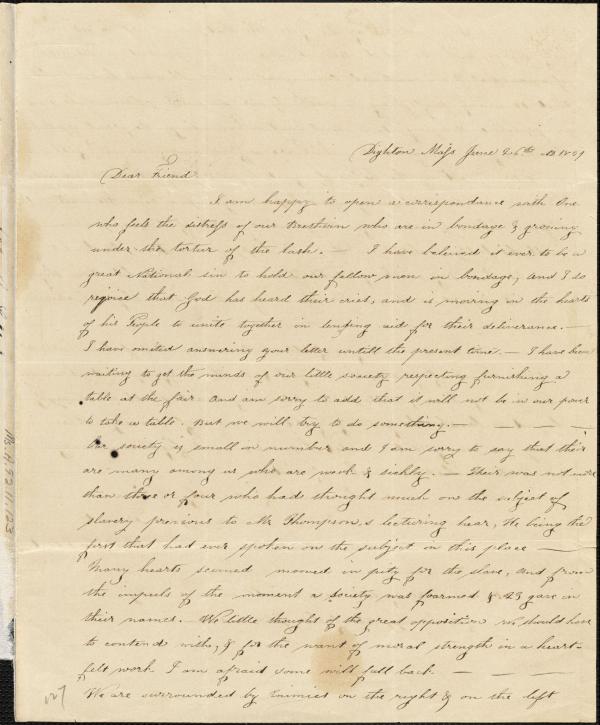 Dighton Mass June 26th AD 1839
Dear Friend
I am happy to open a correspondance with One
who feels the distress of our Brethren who are in bondage & groning
under the tortur of the lash. — I have believed it ever to be a
great National sin to hold our fellow men in bondage, and I do
rejoice that God has heard their cries, and is moving on the hearts
of his People to unite together in lending aid for their deliverance. —
I have omited answering your letter untill the present time. — I have been
waiting to get the minds of our little society respecting furnishing a
table at the fair and am sorry to add that it will not be in our power
to take a table. But we will try to do something. — — — —
Our society is small in number and I am sorry to say that their
are many among us who are weak & sickly. — Their was not more
than three or four who had thought much on the subject of
slavery previous to Mr Thompson,s lecturing hear, He being the
first that had ever spoken on the subject in this place —
Many hearts seemed mooved in pity for the slave, and from
the impuls of the moment a society was foarmed & 23 gave in
their names. We little thought of the great opposition we should have
to contend with, & for the want of moral strength in a heart-
felt work I am afraid some will fall back — — —
We are surrounded by Enimies on the right & on the left
127
Ms. A.9.2.11.123